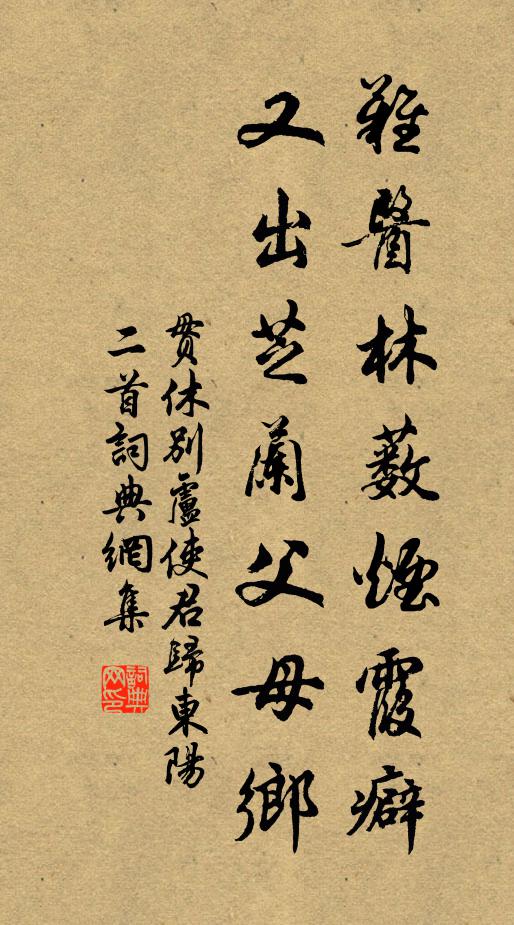 難醫林薮煙霞癖
又出芝蘭父母鄉
貫休別盧使君歸東陽
二首詞典網集
詞典网印